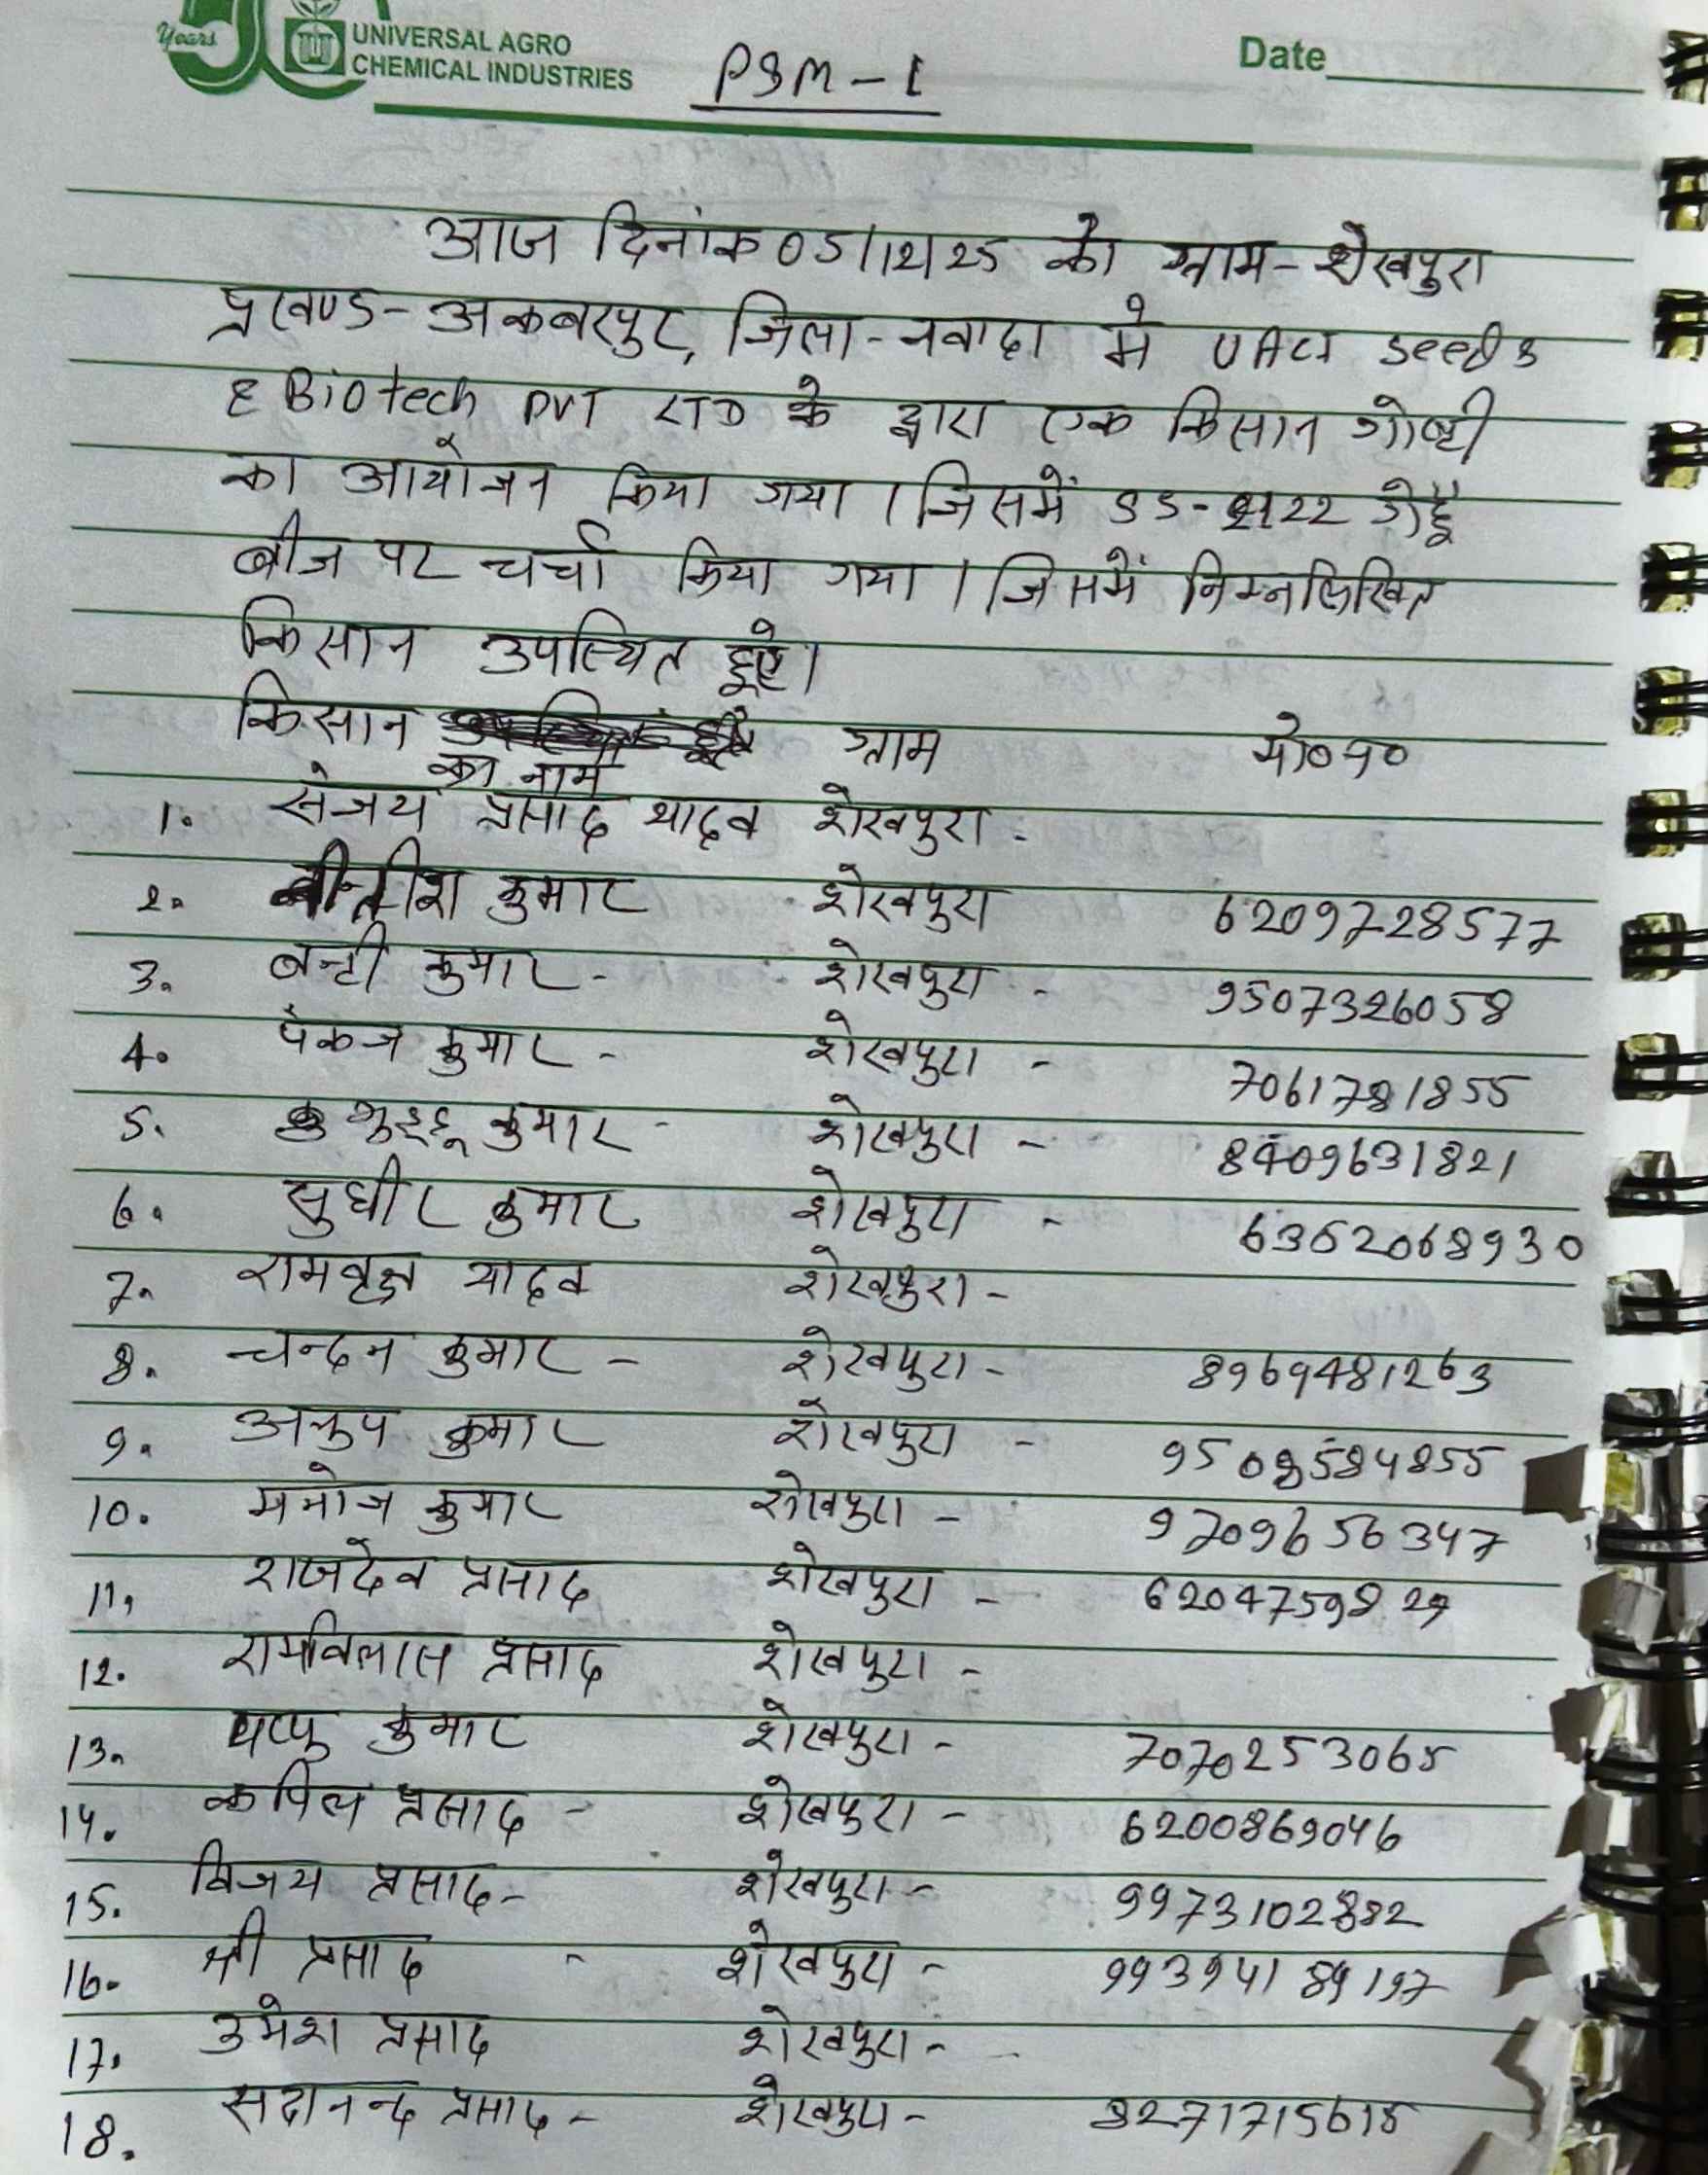 Years
UNIVERSAL AGRO
CHEMICAL INDUSTRIES
PSM-1
Date
आज दिनांक 05/12/25 को ग्राम-शेखपुरा
प्रखण्ड-अकबरपुर, जिला-नवादा मे UACI Seeds
& Biotech PVT LTD के द्वारा एक किसान गोष्टी
का आयोजन किया गया । जिसमें SS-2122 गेहूँ
बीज पर चर्चा किया गया । जिसमें निम्नलिखित
किसान उपस्थित हुए।
किसान का नाम ग्राम मो०न०
1. संजय प्रसाद यादव शेखपुरा -
2. कुमार शेखपुरा 6209728577
3. बन्टी कुमार - शेखपुरा - 9507326058
4. पंकज कुमार - शेखपुरा - 7061781855
5. कुमार - शेखपुरा - 8409631821
6. सुधीर कुमार शेखपुरा - 6362068930
7. रामवृक्ष यादव शेखपुरा -
8. चन्दन कुमार - शेखपुरा - 8969481263
9. अनुप कुमार शेखपुरा - 9508584855
10. मनोज कुमार शेखपुरा - 9709656347
11. राजदेव प्रसाद शेखपुरा - 6204759829
12. रामविलास प्रसाद शेखपुरा -
13. पप्पु कुमार शेखपुरा - 7070253065
14. कपिल प्रसाद - शेखपुरा - 6200869046
15. विजय प्रसाद - शेखपुरा - 9973102882
16. श्री प्रसाद - शेखपुरा - 99394189197
17. उमेश प्रसाद शेखपुरा -
18. सदानन्द प्रसाद - शेखपुरा - 9271715615